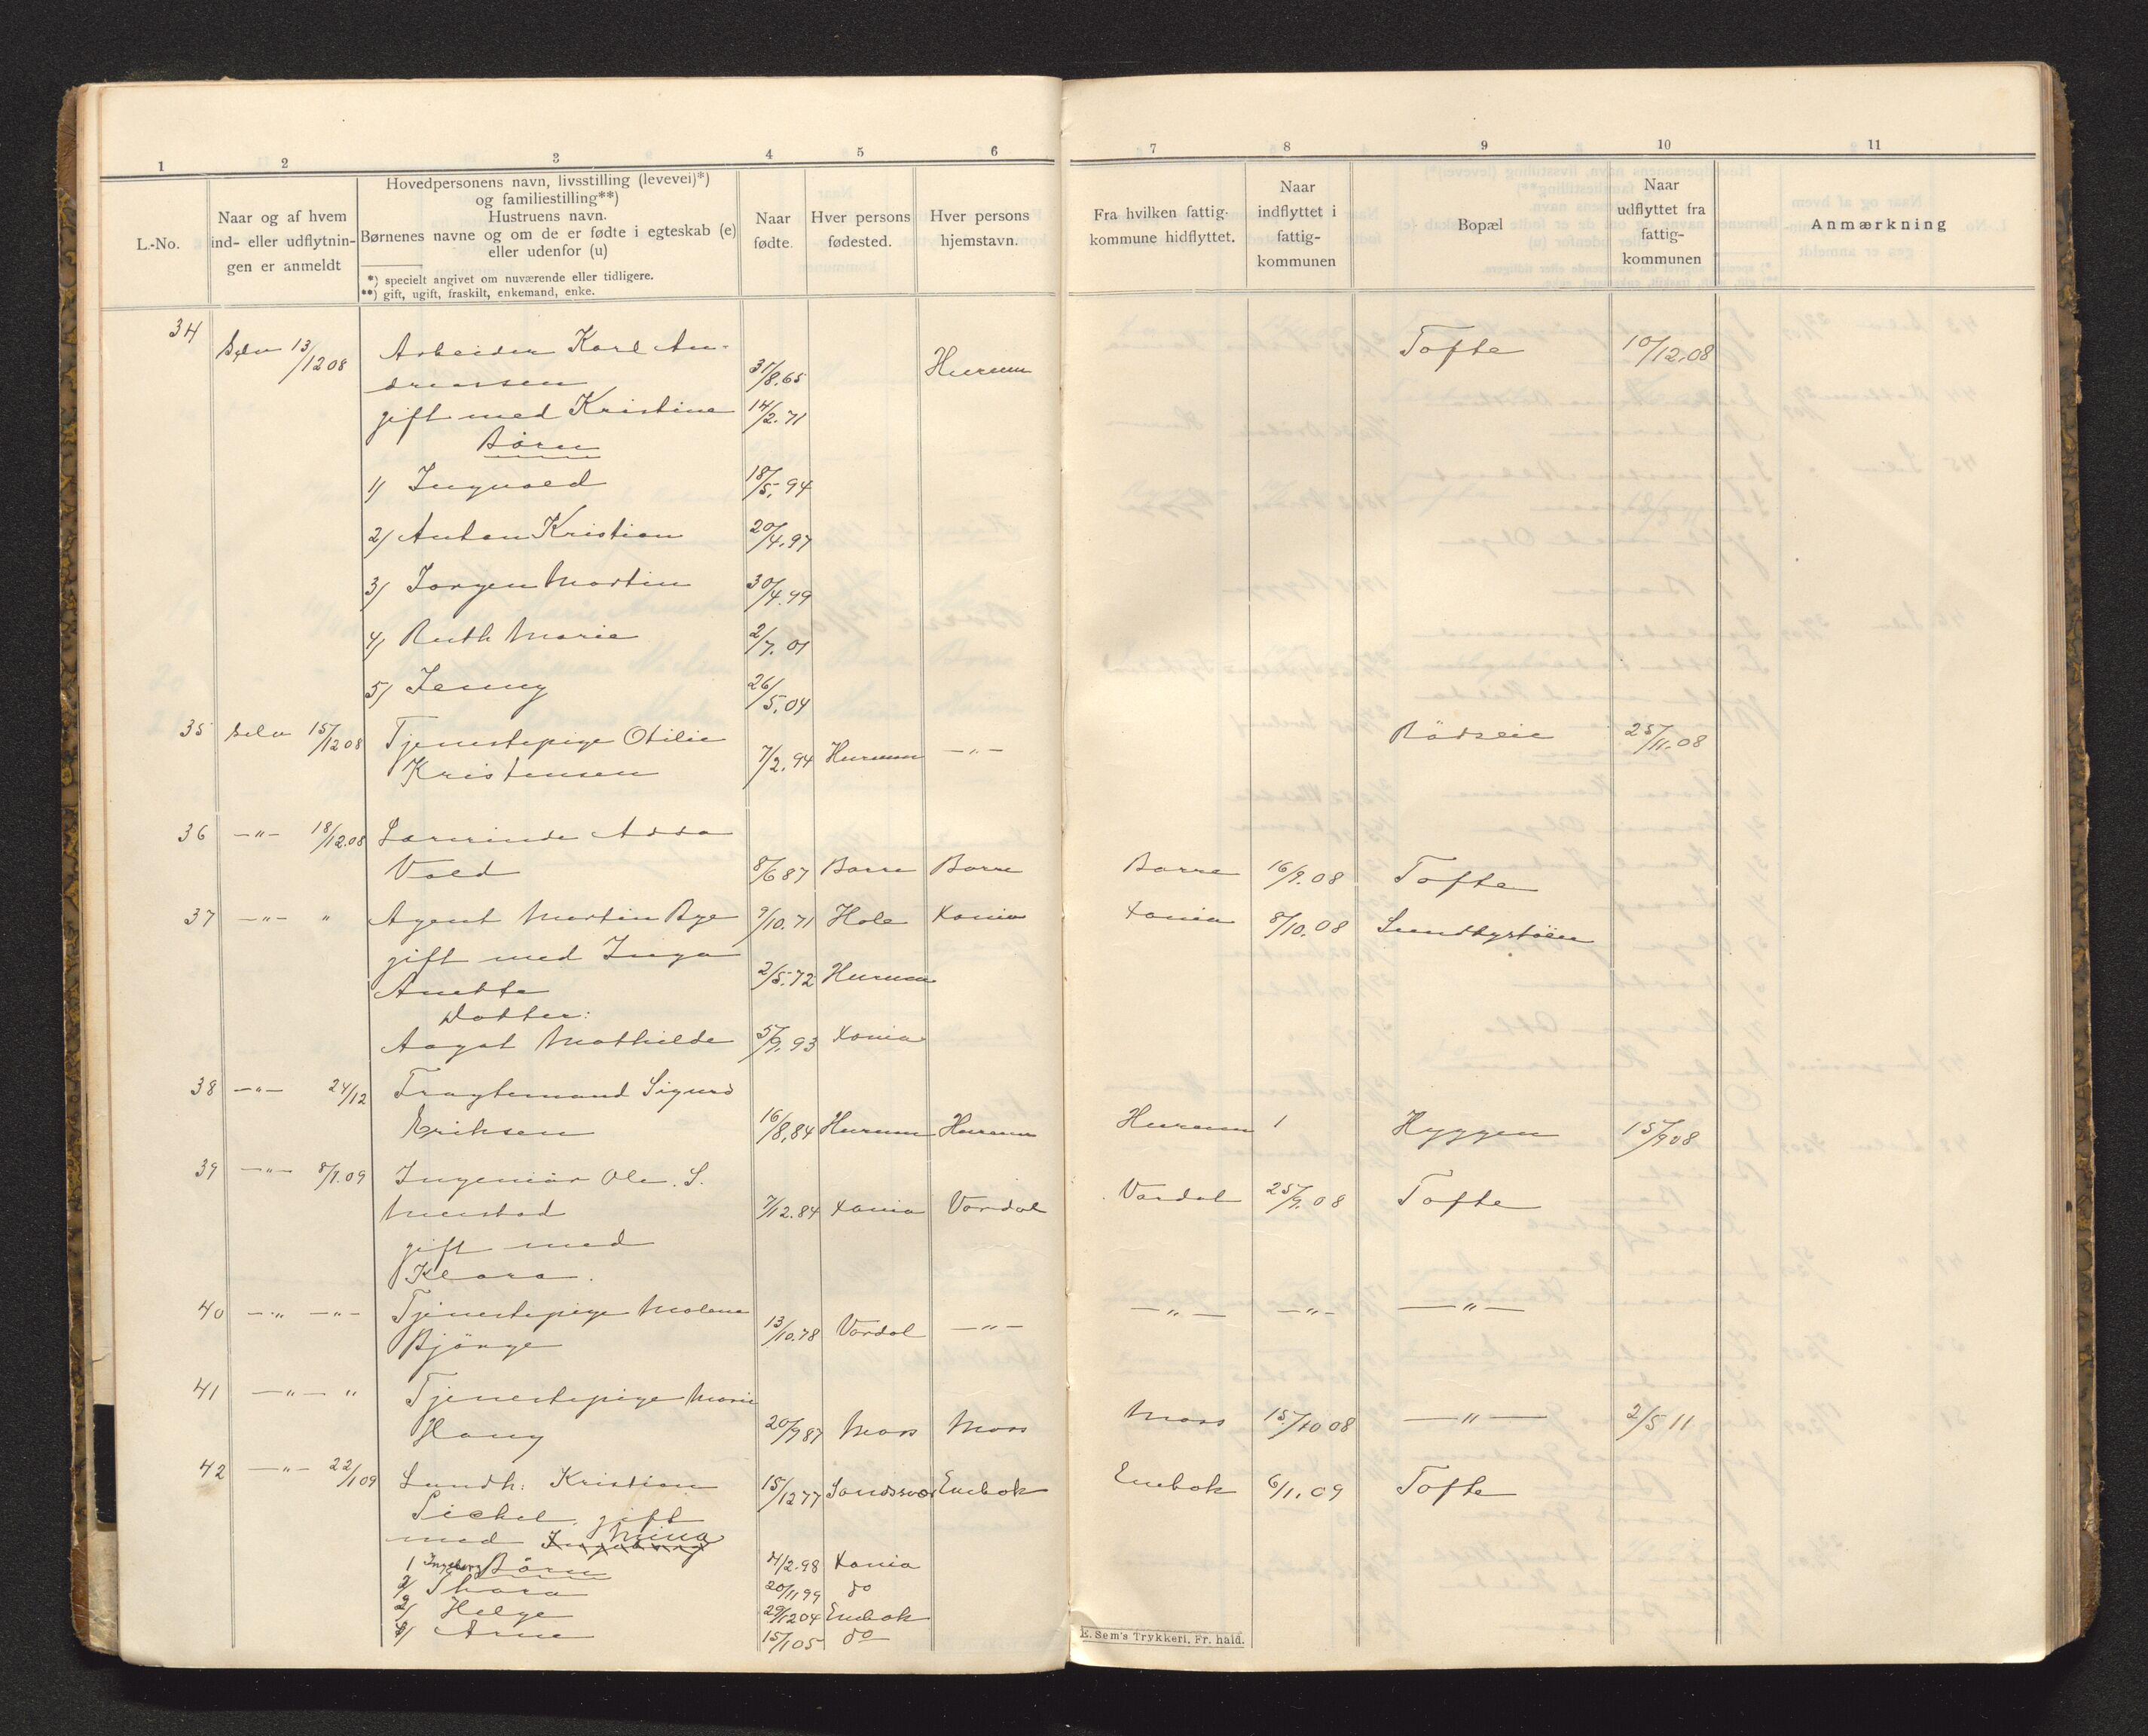 1 2 3 4 5 6 7 8 9 10 11
L.-No.
Naar og af hvem
ind- eller udflytnin-
gen er anmeldt
Hovedpersonens navn, livsstilling (levevei)*)
og familiestilling**)
Hustruens navn.
Børnenes navne og om de er fødte i egteskab (e)
eller udenfor (u)
*) specielt angivet om nuværende eller tidligere.
**) gift, ugift, fraskilt, enkemand, enke.
Naar
fødte.
Hver persons
fødested.
Hver persons
hjemstavn.
Fra hvilken fattig-
kommune hidflyttet.
Naar
indflyttet i
fattig-
kommunen
Bopæl
Naar
udflyttet fra
fattig-
kommunen
Anmærkning
34 Selv 13/12 08 Arbeider Karl An- Tofte 10/12.08
dreassen 31/8.65 Hurum
gift med Kristine 14/2.71
Börn
1) Ingvald 18/5.94
2) Anton Kristian 20/4.97
3) Jorgen Martin 30/4.99
4) Ruth Marie 2/7.01
5) Jenny 26/5.04
35 Selv 15/12 08 Tjenestepige Otilie Rödseie 25/11.08
Kristensen 7/2.94 Hurum —"—
36 —"— 18/12.08 Lærerinde Adda
Vold 8/6 87 Borre Borre Borre 16/9.08 Tofte
37 —"— " Agent Martin Bye 9/10.71 Hole Kania Kania 8/10.08 Sundbystöen
gift med Inga 2/5.72 Hurum
Anette
Datter:
Aagot Mathilde 5/9.93 Kania
38 —"— 24/12 Fragtemand Sigurd
Eriksen 16/8.84 Hurum Hurum Hurum 1 Hyggen 15/9 08
39 —"— 8/1.09 Ingeniör Ole. S.
Mustad 7/12.84 Kania Vardal Vardal 25/9.08 Tofte
gift med
Klara.
40 —"— —"— Tjenestepige Malena —"— —"— —"—
Bjönge 13/10.78 Vardal —"—
41 —"— " Tjenestepige Marie
Haug 20/9 87 Moss Moss Moss 15/10 08 —"— 2/5 11
42 —"— 22/1 09 Landh: Kristian 15/12 77 Sandsvær Enebak Enebak 6/1.09 Tofte
Sickel, gift
med Ingeborg Mina
1 Ingeborg Börn 4/2.98 Kania
2/ Thora 20/11 99 do
3/ Helge 29/12 04 Enebak
4/ Arne 15/1 05 do
E. Sem's Trykkeri, Fr. hald.